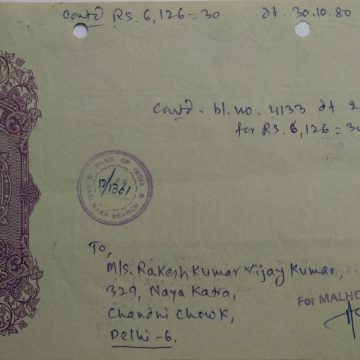 Contd Rs. 6,126=30 dt. 30.10.80
Contd. bl. no. 4133 dt 2
for Rs. 6,126=30
BANK OF INDIA
BRANCH
To,
M/s. Rakesh Kumar Vijay Kumar,
329, Naya Katra,
Chandni Chowk,
Delhi-6.
For MALHO